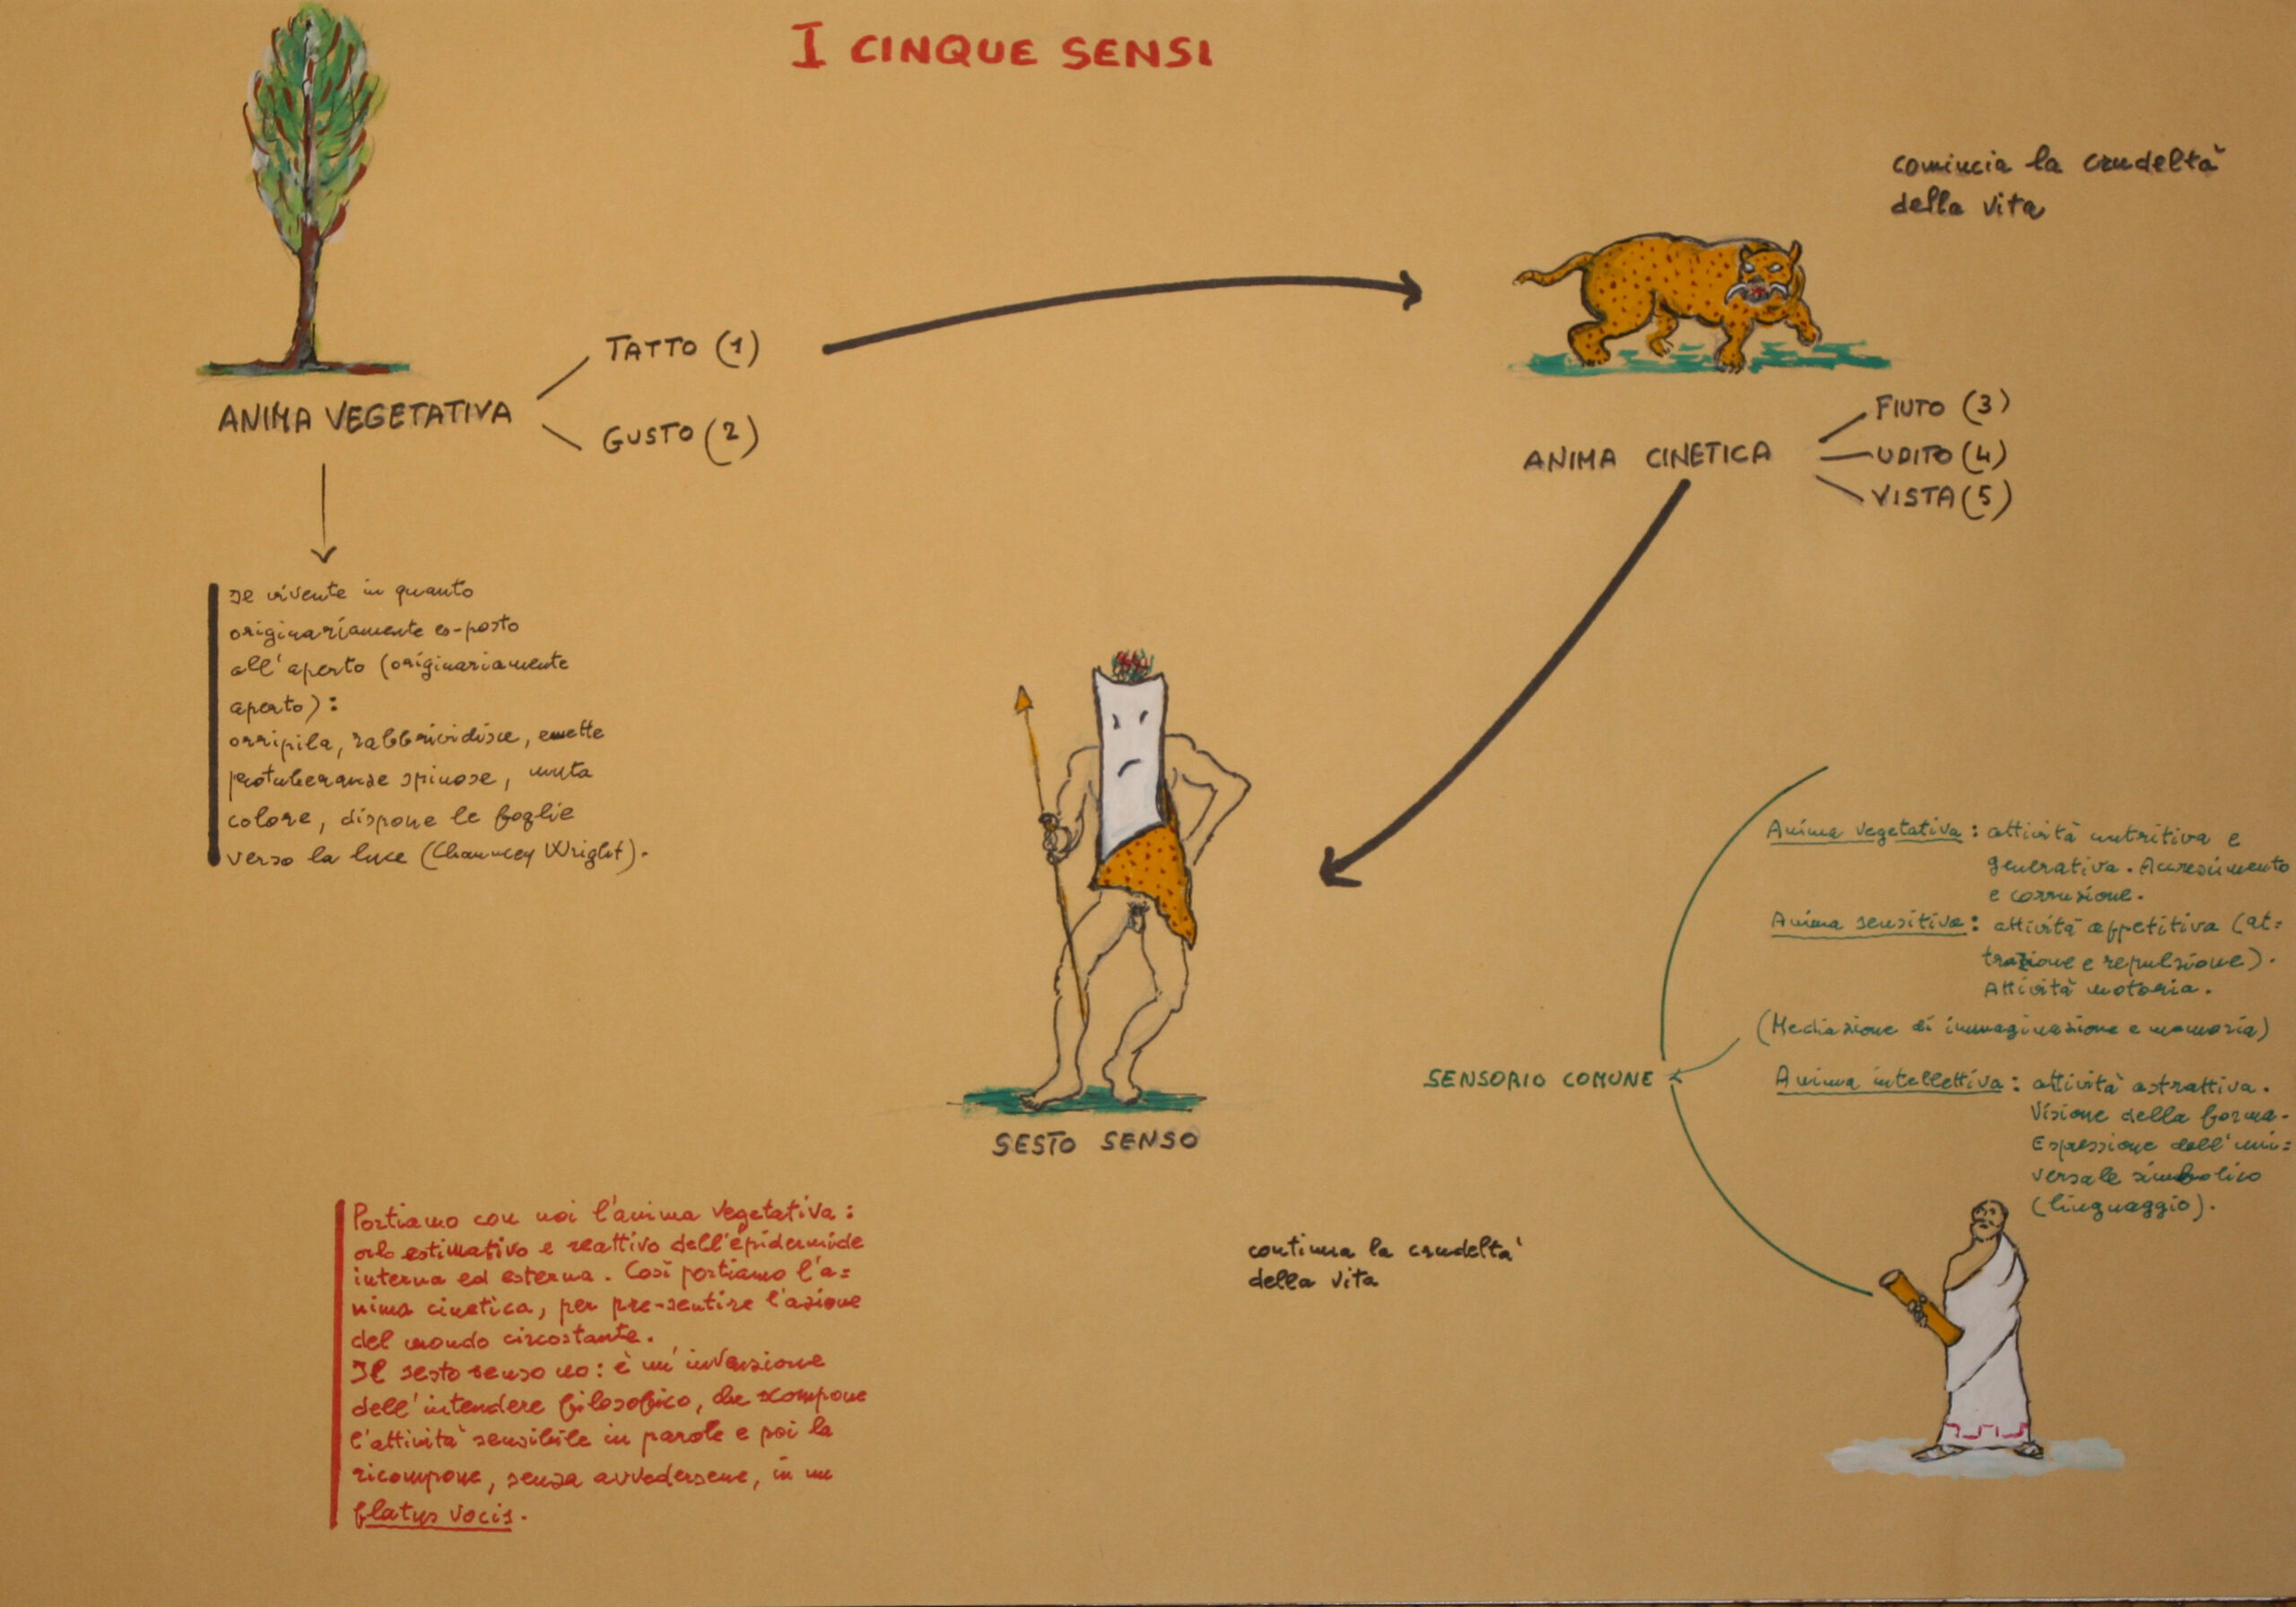 I CINQUE SENSI
comincia la crudeltà
della vita
TATTO (1)
GUSTO (2)
ANIMA VEGETATIVA
FIUTO (3)
UDITO (4)
VISTA (5)
ANIMA CINETICA
Il vivente in quanto
originariamente es-posto
all'aperto (originariamente
aperto):
orripila, rabbrividisce, emette
protuberanze spinose, muta
colore, dispone le foglie
verso la luce (Chauncey Wright).
Anima vegetativa: attività nutritiva e
generativa. Accrescimento
e corruzione.
Anima sensitiva: attività appetitiva (at=
trazione e repulsione).
Attività motoria.
(Mediazione di immaginazione e memoria)
SENSORIO COMUNE
Anima intellettiva: attività astrattiva.
Visione della forma.
Espressione dell'uni=
versale simbolico
(linguaggio).
SESTO SENSO
Portiamo con noi l'anima vegetativa:
orlo estimativo e reattivo dell'epidermide
interna ed esterna. Così portiamo l'a=
nima cinetica, per pre-sentire l'azione
del mondo circostante.
Il sesto senso no: è un'invenzione
dell'intendere filosofico, che scompone
l'attività sensibile in parole e poi la
ricompone, senza avvedersene, in un
flatus vocis.
continua la crudeltà
della vita